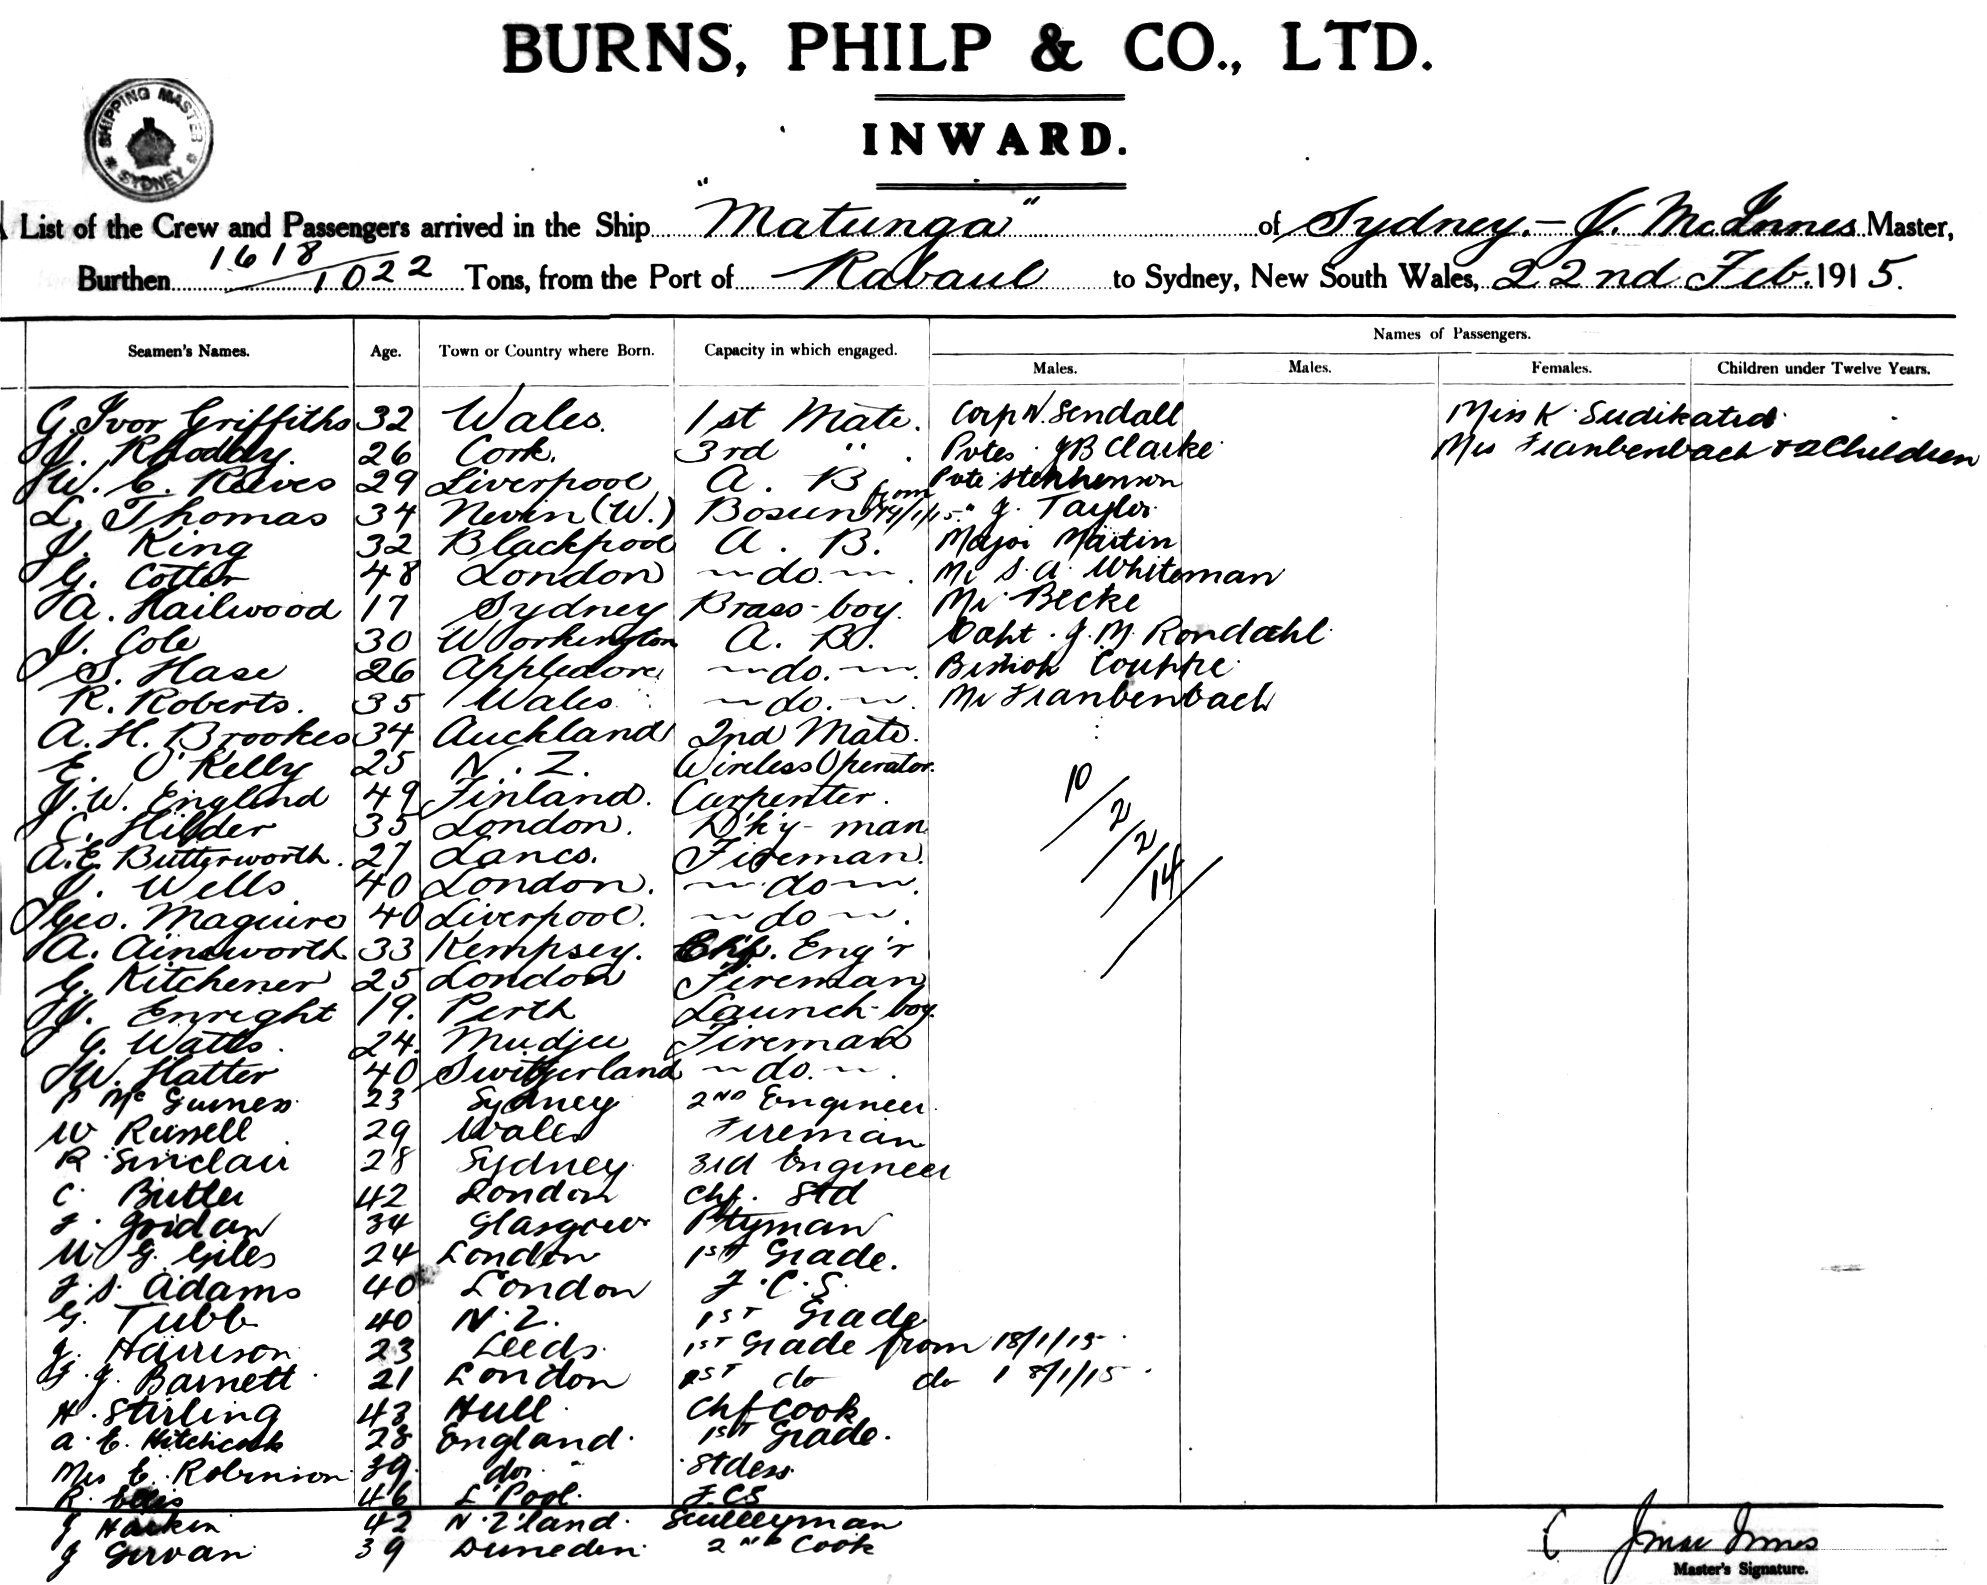 BURNS, PHILP & CO., LTD.
INWARD.
SHIPPING MASTER SYDNEY
List of the Crew and Passengers arrived in the Ship "Matunga" of Sydney. - J. McInnes Master,
Burthen 1618/1022 Tons, from the Port of Rabaul to Sydney, New South Wales, 22nd Feb. 1915.
Names of Passengers.
Seamen's Names. Age. Town or Country where Born. Capacity in which engaged. Males. Males. Females. Children under Twelve Years.
G. Ivor Griffiths 32 Wales. 1st Mate. Corp W. Sendall Miss K. Sudikatid
J. Rhoddy. 26 Cork. 3rd " . Pvtes. J B Clarke Mrs Franbenbach + 2 Children
W. C. Reeves 29 Liverpool A. B Pvte Stephenson
L. Thomas 34 Nevin (W.) Bosun from 19/1/15. " J. Taylor
J. King 32 Blackpool A. B. Major Martin
G. Cotter 48 London do. Mr S. A. Whiteman
A. Hailwood 17 Sydney Brass-boy. Mr. Becke
J. Cole 30 Workington A. B. Capt. J. M. Rondahl
S. Hase 26 Appledore do. Bishop Couppe
R. Roberts. 35 Wales do. Mr Franbenbach
A. H. Brookes 34 Auckland 2nd Mate.
E. O'Kelly 25 N. Z. Wireless Operator.
J. W. England 49 Finland. Carpenter.
C. Hilder 35 London. D'k'y-man
A. E. Butterworth. 27 Lancs. Fireman.
J. Wells 40 London. do.
Geo. Maguire 40 Liverpool. do.
A. Ainsworth 33 Kempsey. Chf. Eng'r
G. Kitchener 25 London Fireman
J. Enright 19. Perth Launch-boy.
G. Watts. 24. Mudjee Fireman
W. Hatter 40 Switzerland do.
P McGuiness 23 Sydney 2ND Engineer.
W Russell 29 Wales Fireman
R. Sinclair 28 Sydney 3rd Engineer
C. Butler 42 London Chf. Std
34 Glasgow Ptyman
W G. Giles 24 London 1st Grade.
F. S. Adams 40 London F. C. S.
G. Tubb 40 N. Z. 1ST Grade
J. Harrison 23 Leeds. 1ST Grade from 18/1/15
G. J. Barnett 21 London 1ST do do 18/1/15
H. Stirling 43 Hull Chf Cook
A. E. Hitchcock 28 England. 1ST Grade.
Mrs E. Robinson 39 do. Stdess.
R. Ellis 46 L'Pool. F.CS
J Harkin 42 N. Z'land. Sculleyman
J Girvan 39 Dunedin. 2nd Cook
10/2/2/14
J McInnes
Master's Signature.